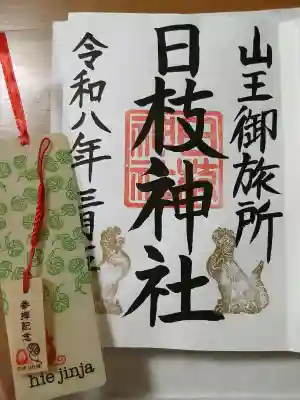 山王御旅所
日枝神社
令和八年三月
参拝記念
hie jinja